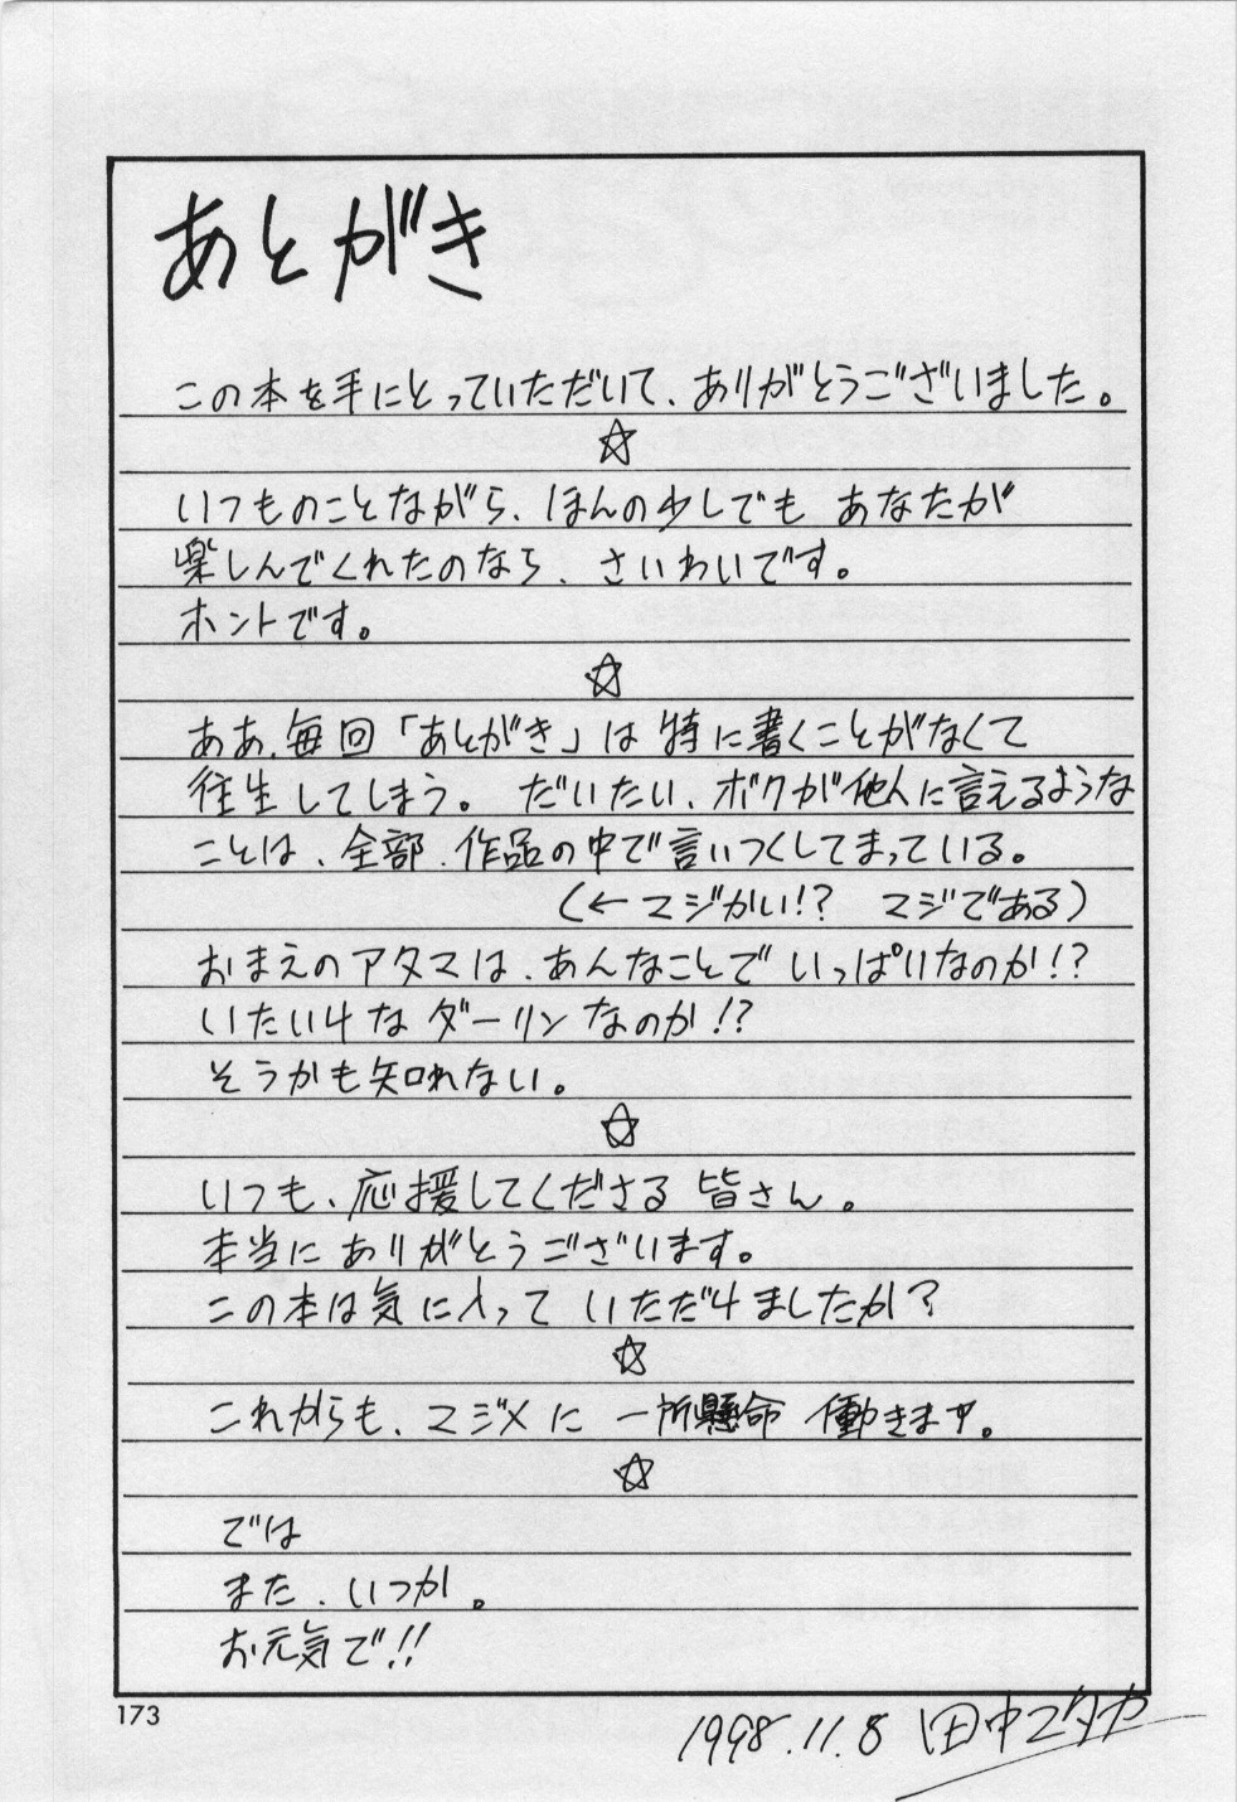 あとがき
この本を手にとっていただいて、ありがとうございました。
☆
いつものことながら、ほんの少しでも あなたが
楽しんでくれたのなら、さいわいです。
ホントです。
☆
ああ、毎回「あとがき」は特に書くことがなくて
往生してしまう。 だいたい、ボクが他人に言えるような
ことは、全部、作品の中で言いつくしてまっている。
(←マジかい!? マジである)
おまえのアタマは、あんなことで いっぱいなのか!?
いたいけな ダーリン なのか!?
そうかも知れない。
☆
いつも、応援してくださる 皆さん。
本当に ありがとうございます。
この本は気に入って いただけましたか?
☆
これからも、マジメに 一所懸命 働きます。
☆
では
また、いつか。
お元気で!!
173
1998.11.8 田中ユタカ